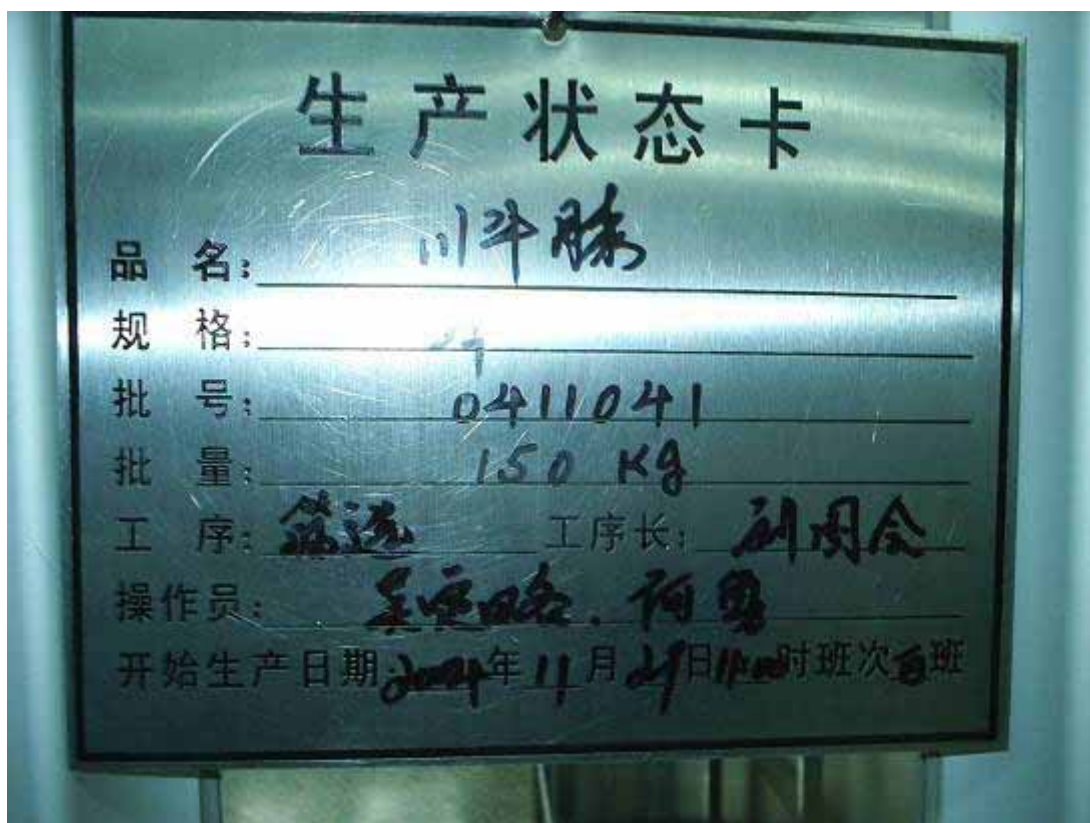 生产状态卡
品 名: 川牛膝
规 格:
批 号: 0411041
批 量: 150 Kg
工 序: 筛选 工序长: 刘国会
操作员:
开始生产日期: 2004年11月29日11:00时班次白班